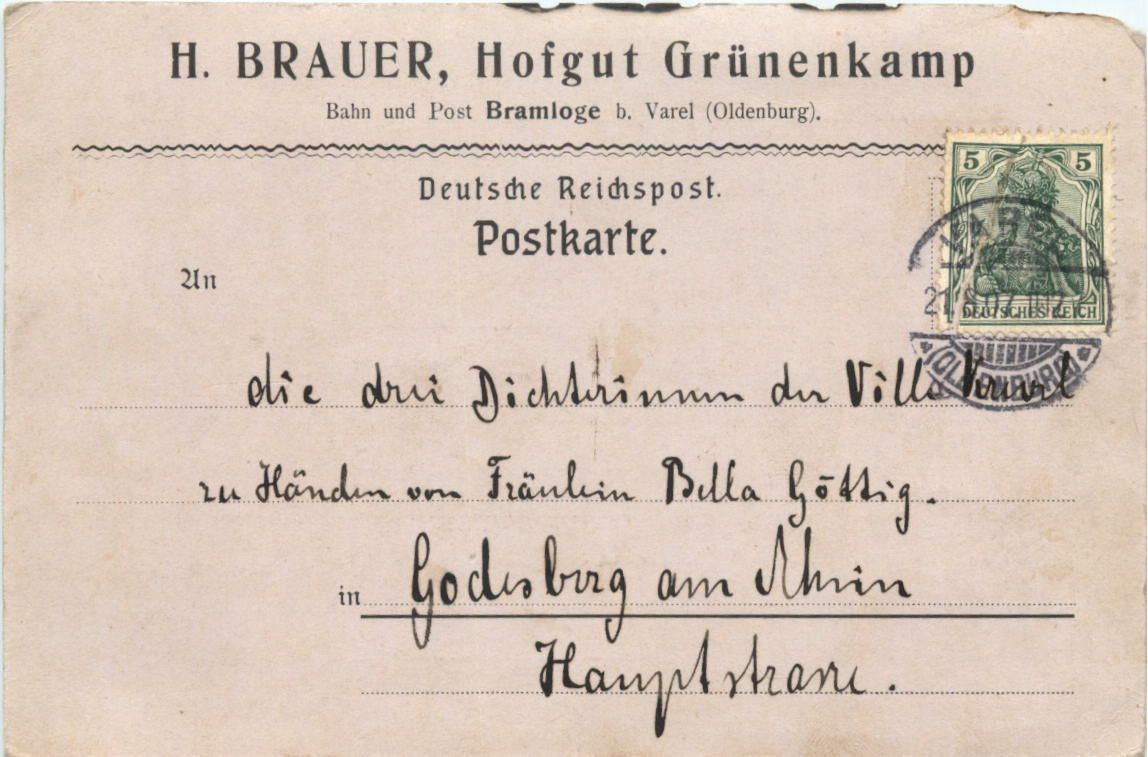 H. BRAUER, Hofgut Grünenkamp
Bahn und Post Bramloge b. Varel (Oldenburg).
Deutsche Reichspost.
Postkarte.
An
5 5
DEUTSCHES REICH
(OLDENBURG)
die drei Dichterinnen der Villa
zu Händen von Fräulein Bella Göttig.
in Godesberg am Rhein
Hauptstrasse.